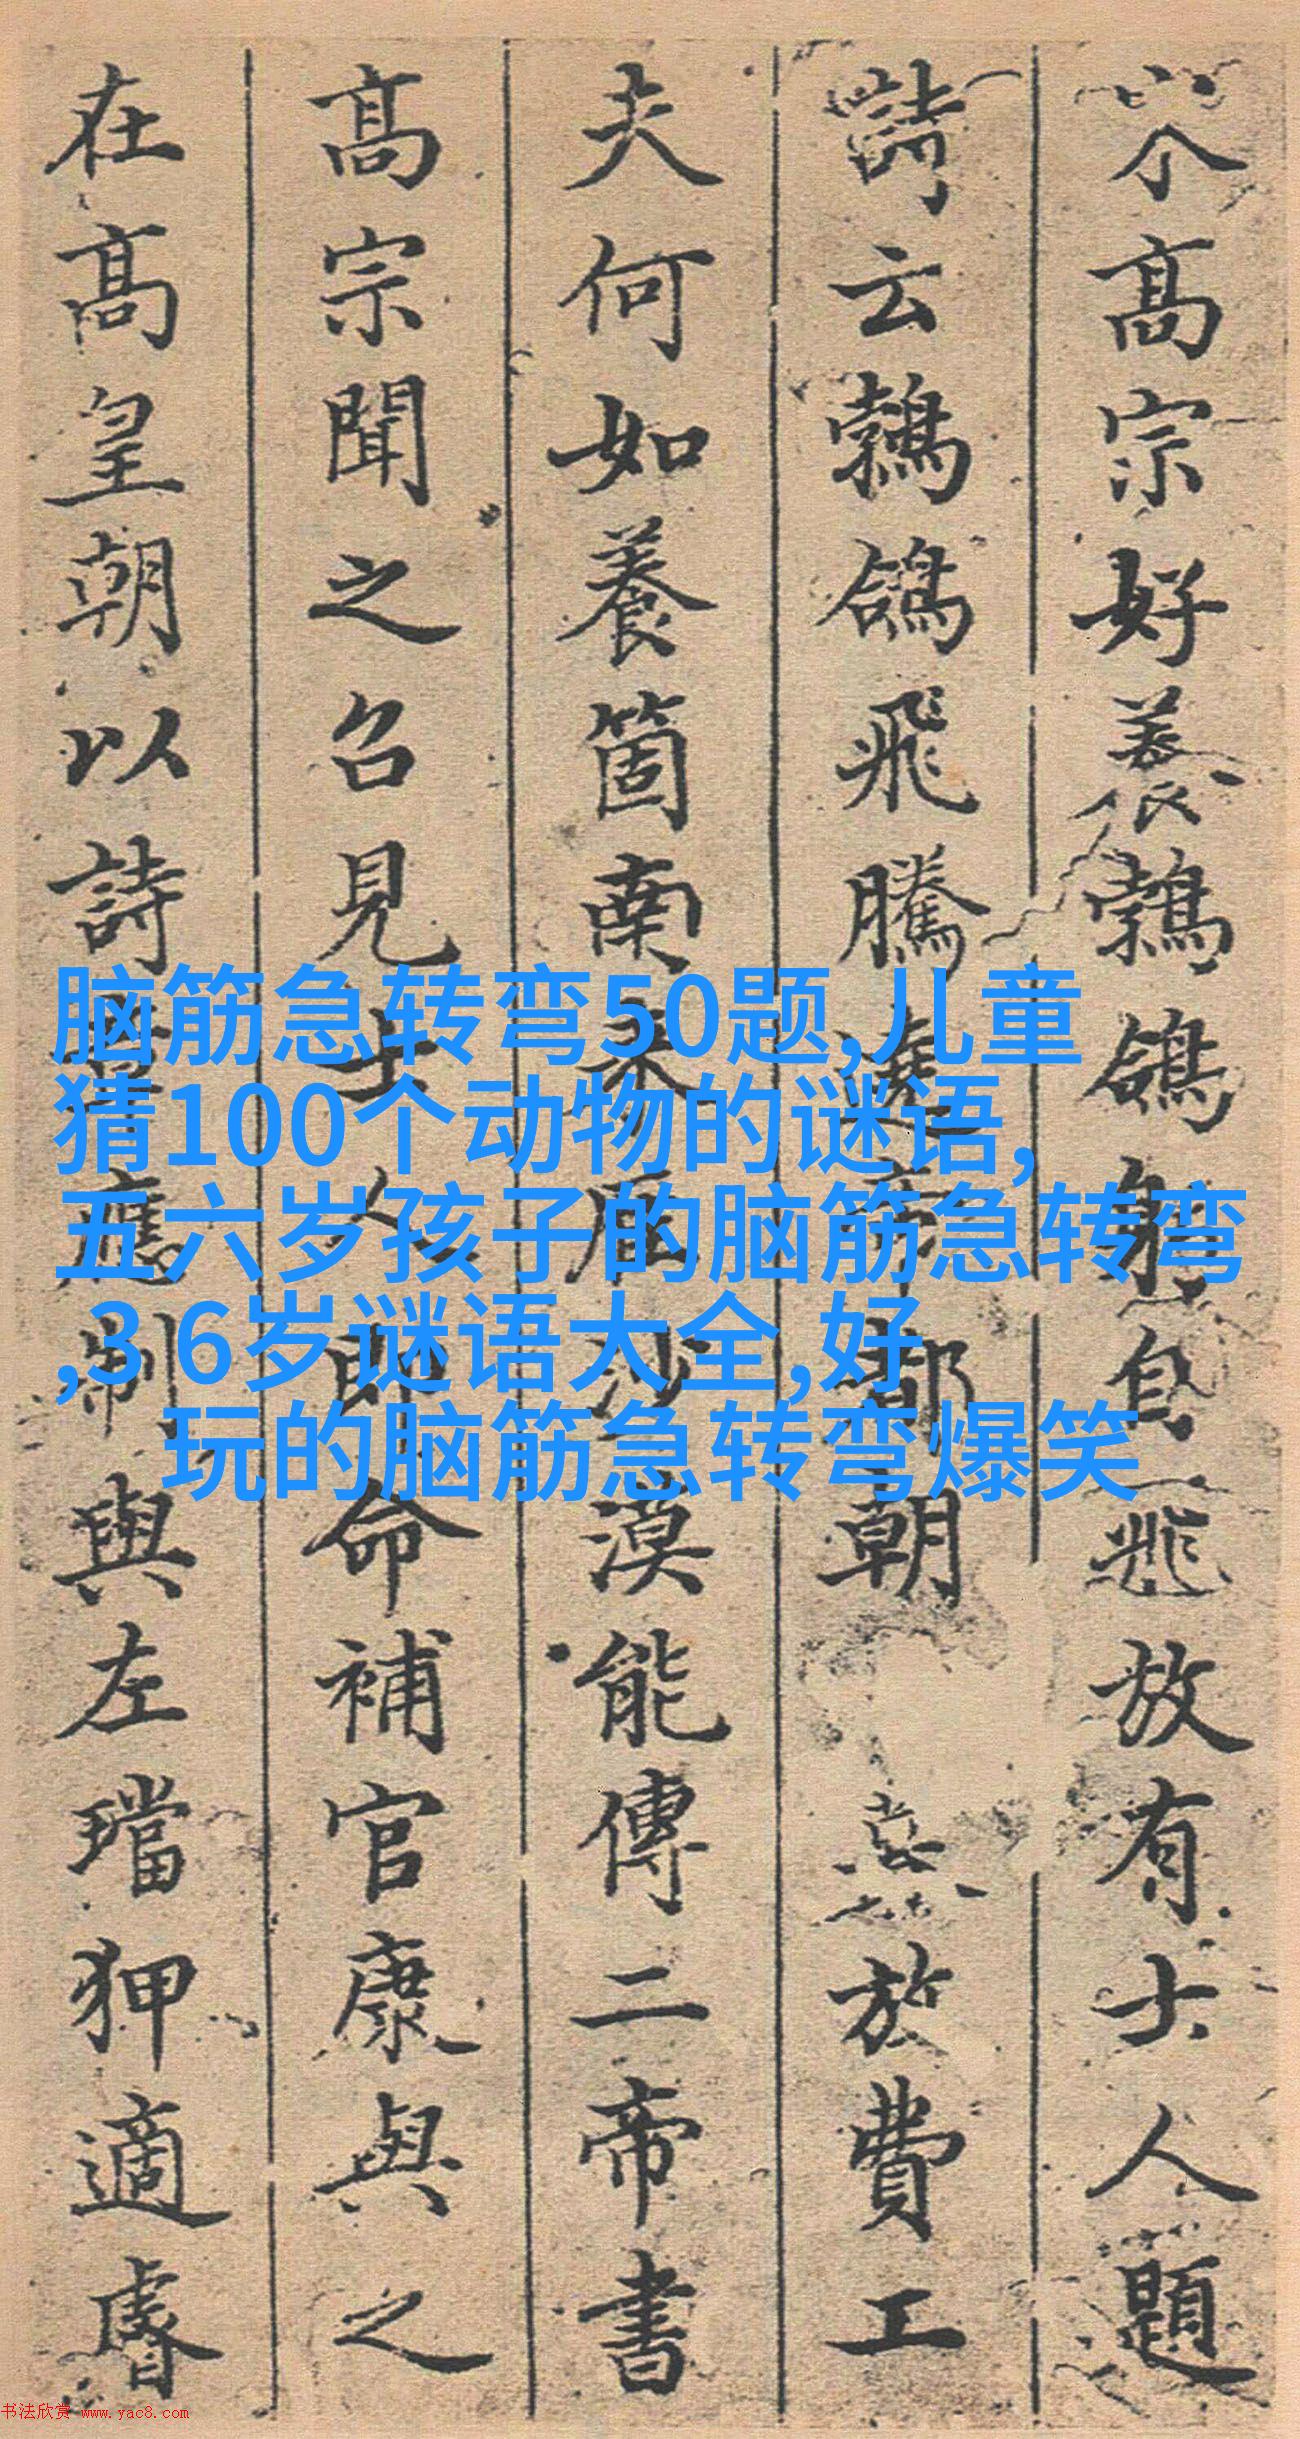 高宗好養鵓鴿躬自飛放有士人題
詩云鵓鴿飛騰遶帝都朝暮放費工
夫何如養箇南來鴈沙漠能傳二帝書
高宗聞之召見士人即命補官康與之
在高皇朝以詩章應制與左璫狎適睿
脑筋急转弯50题,儿童
猜100个动物的谜语,
五六岁孩子的脑筋急转弯
,3 6岁谜语大全,好
玩的脑筋急转弯爆笑
书法欣赏 www.yac8.com